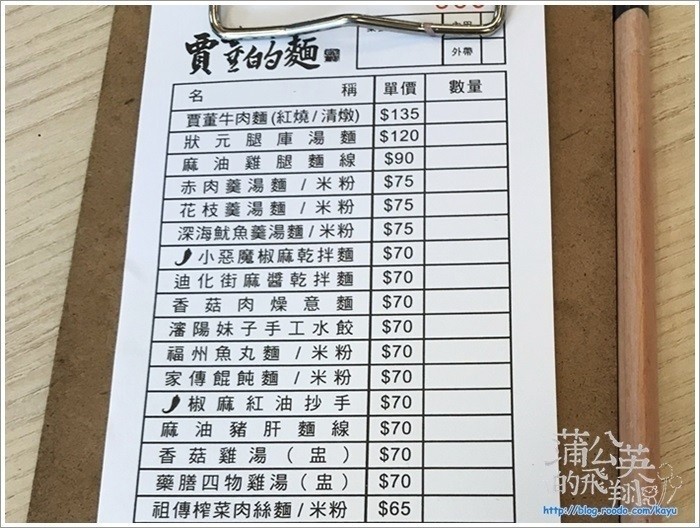 賈董的麵
外帶
名稱 單價 數量
賈董牛肉麵(紅燒/清燉) $135
狀元腿庫湯麵 $120
麻油雞腿麵線 $90
赤肉羹湯麵/米粉 $75
花枝羹湯麵/米粉 $75
深海魷魚羹湯麵/米粉 $75
小惡魔椒麻乾拌麵 $70
迪化街麻醬乾拌麵 $70
香菇肉燥意麵 $70
瀋陽妹子手工水餃 $70
福州魚丸麵/米粉 $70
家傳餛飩麵/米粉 $70
椒麻紅油抄手 $70
麻油豬肝麵線 $70
香菇雞湯(盅) $70
藥膳四物雞湯(盅) $70
祖傳榨菜肉絲麵/米粉 $65
蒲公英的飛翔
http://blog.roodo.com/kayu